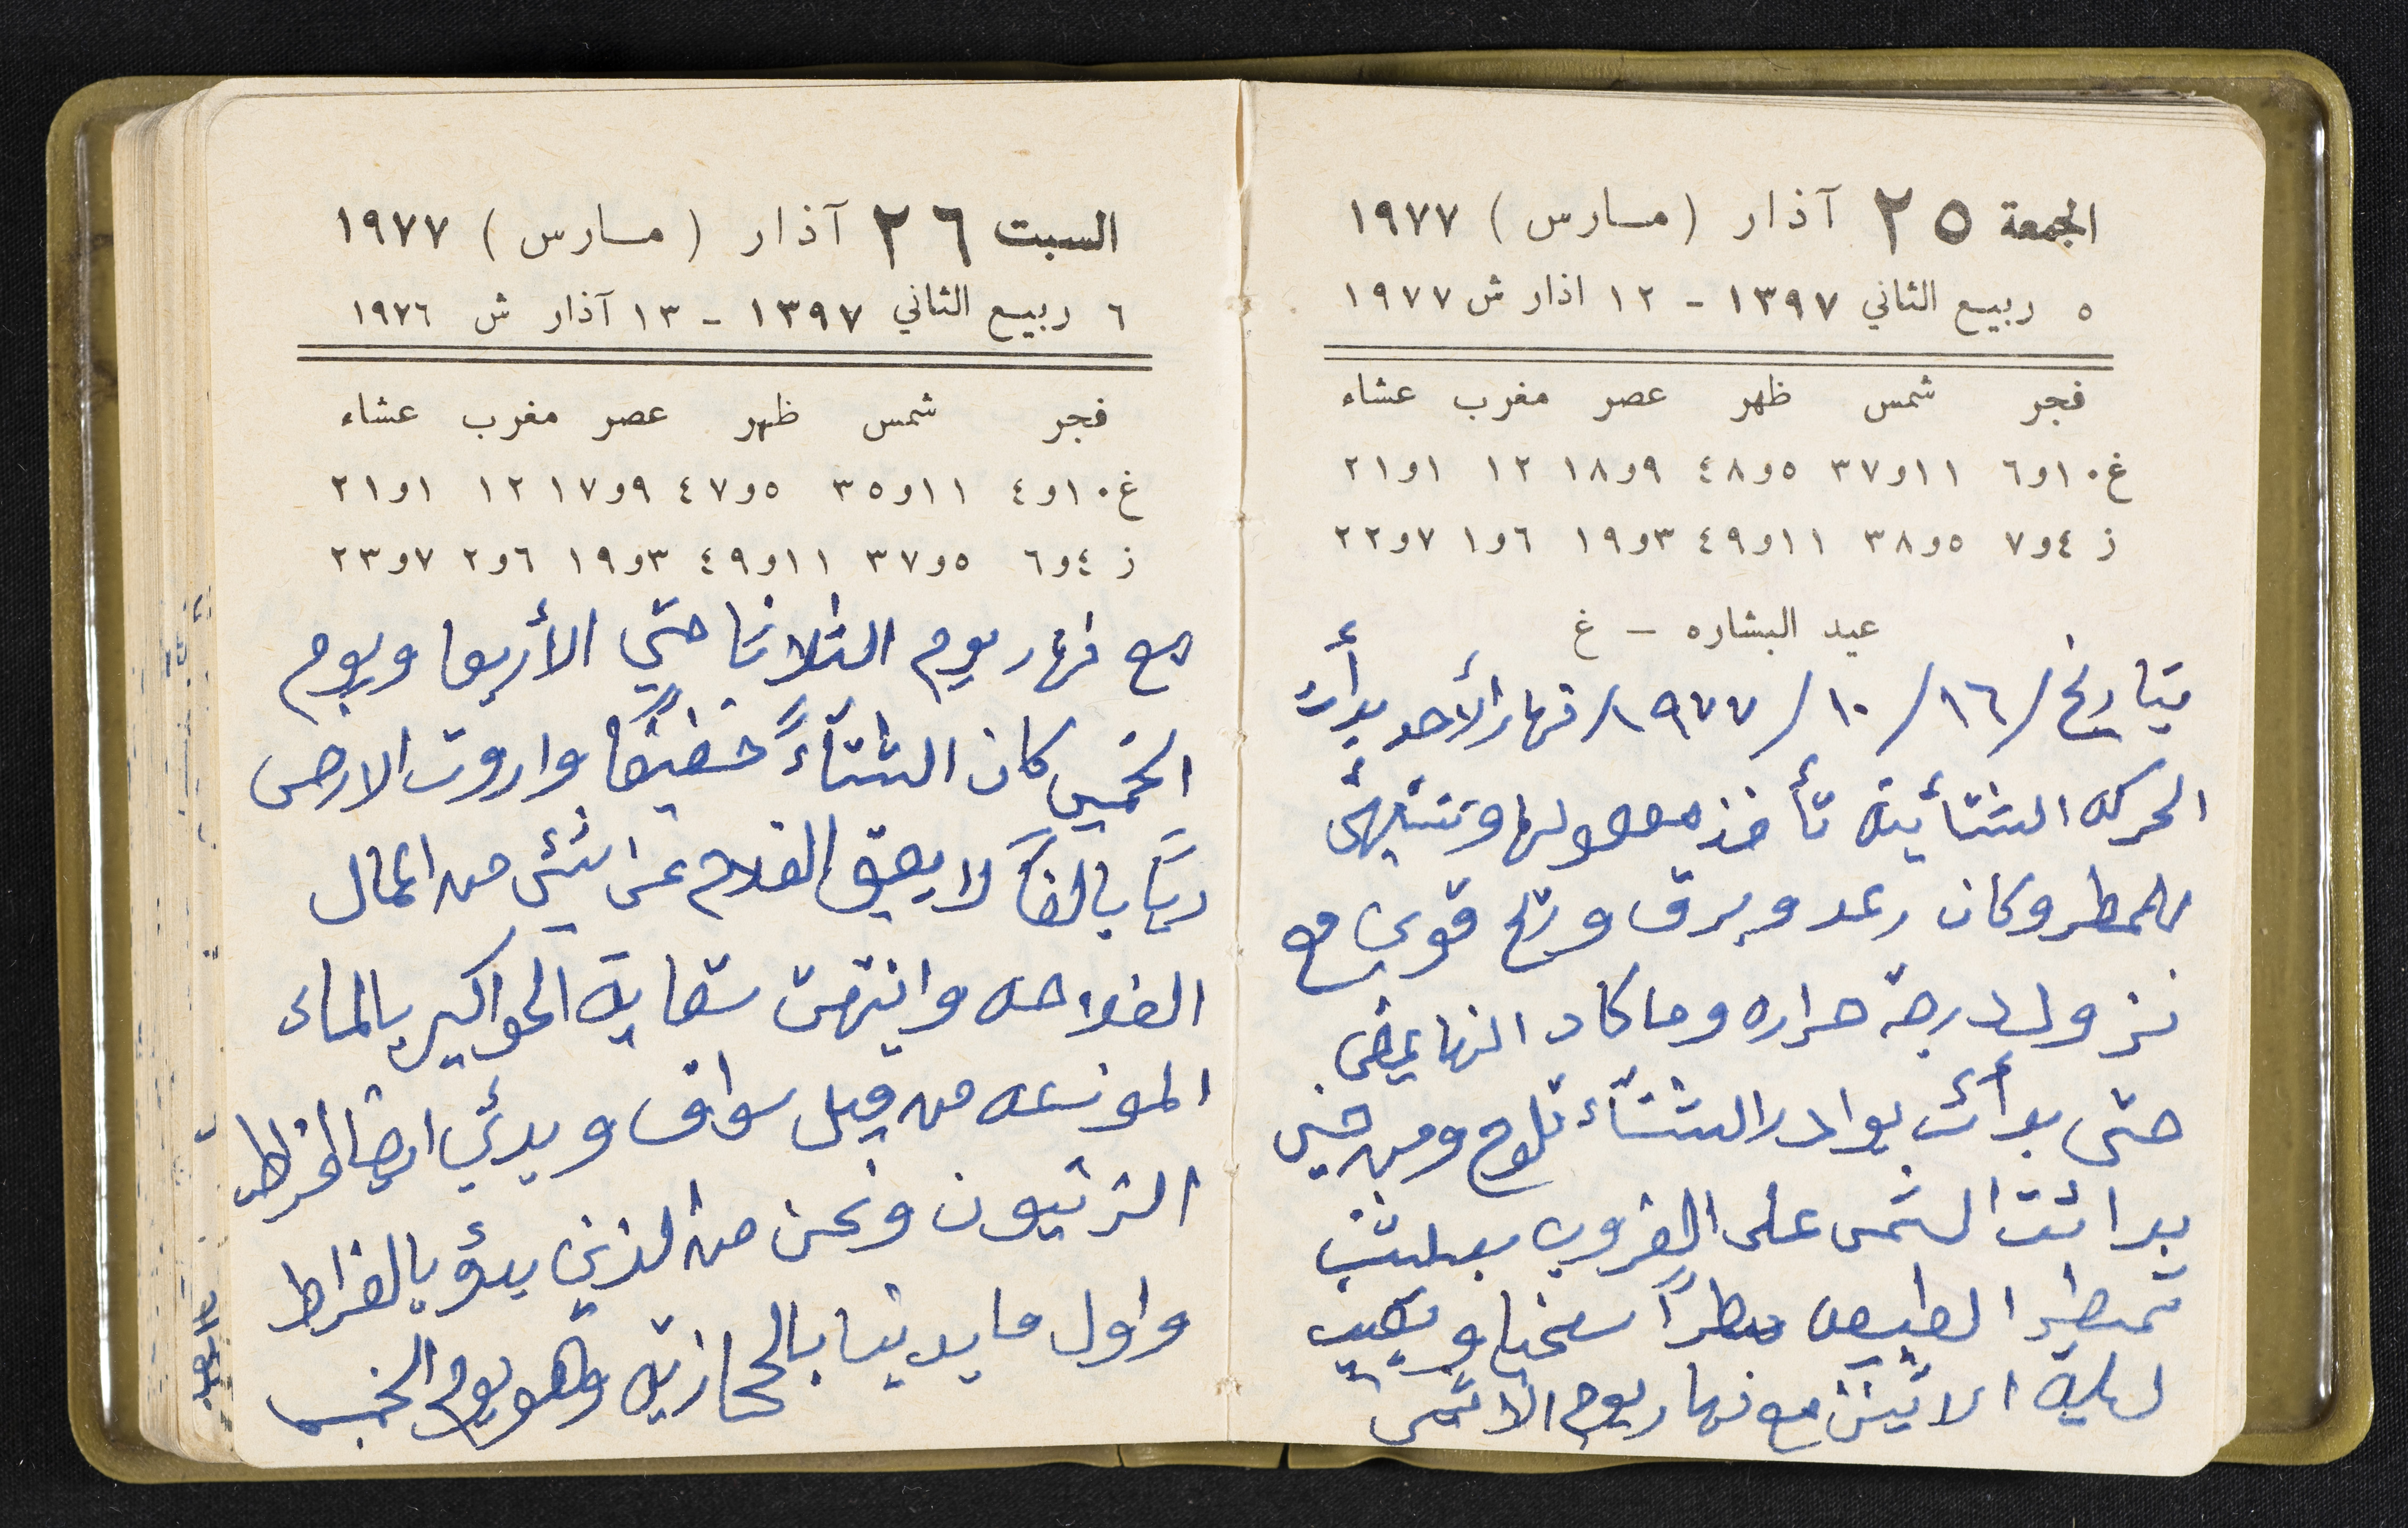 الجمعة ٢٥ آذار (مارس) ١٩٧٧
٥ ربيع الثاني ١٣٩٧ - ١٢ اذار ش ١٩٧٧
فجر شمس ظهر عصر مغرب عشاء
غ ١٠و٦ ١١و٣٧ ٥و٤٨ ٩و١٨ ١٢ ١و٢١
ز ٤و٧ ٥و٣٨ ١١و٤٩ ٣و١٩ ٦و١ ٧و٢٢
عيد البشاره - غ
بتاريخ /١٦/ ١٠/ ١٩٧٧/ نهار الأحد بدأت
الحركه الشتائية تأخذ مفعولها وتتهئ
للمطر وكان رعد وبرق وريح قوي مع
نزول درجة حراره وما كاد النها يمضي
حتى بدأت بوادر الشتآء تلوح ومن حين
بدائت الشمس على الغروب بعلبت
تمطر الطبيعه مطراً سخيا و
ليلة الاثنين مع نهار يوم الاثمى
السبت ٢٦ آذار (مارس) ١٩٧٧
٦ ربيع الثاني ١٣٩٧ - ١٣ آذار ش ١٩٧٦
فجر شمس ظهر عصر مغرب عشاء
غ ١٠و٤ ١١و٣٥ ٥و٤٧ ٩و١٧ ١٢ ١و٢١
ز ٤و٦ ٥و٣٧ ١١و٤٩ ٣و١٩ ٦و٢ ٧و٢٣
مع نهار يوم الثلاثا حتي الأربعا ويوم
الخميس كان الشتآءً خفيفاً واروت الارض
ريّاً بالغاً لا يعيق الفلاح عن شئ من اعمال
الفلاحه وانتهت سقاية الحواكير بالماء
من قبل سواق وبدئ ايضا الخراط
الزتيون ونحن من الذين بدؤ بالفراط
واول ما بدينا بالححازية وهو يوم الخميس